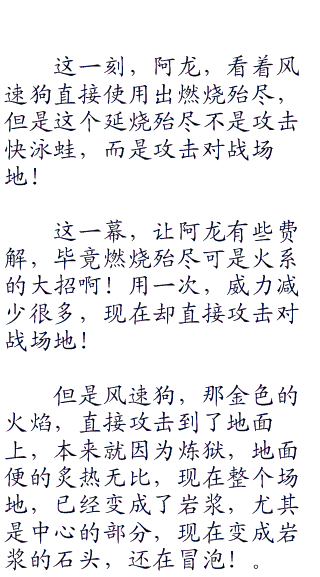 这一刻，阿龙，看着风
速狗直接使用出燃烧殆尽，
但是这个延烧殆尽不是攻击
快泳蛙，而是攻击对战场
地！
这一幕，让阿龙有些费
解，毕竟燃烧殆尽可是火系
的大招啊！用一次，威力减
少很多，现在却直接攻击对
战场地！
但是风速狗，那金色的
火焰，直接攻击到了地面
上，本来就因为炼狱，地面
便的炙热无比，现在整个场
地，已经变成了岩浆，尤其
是中心的部分，现在变成岩
浆的石头，还在冒泡！。